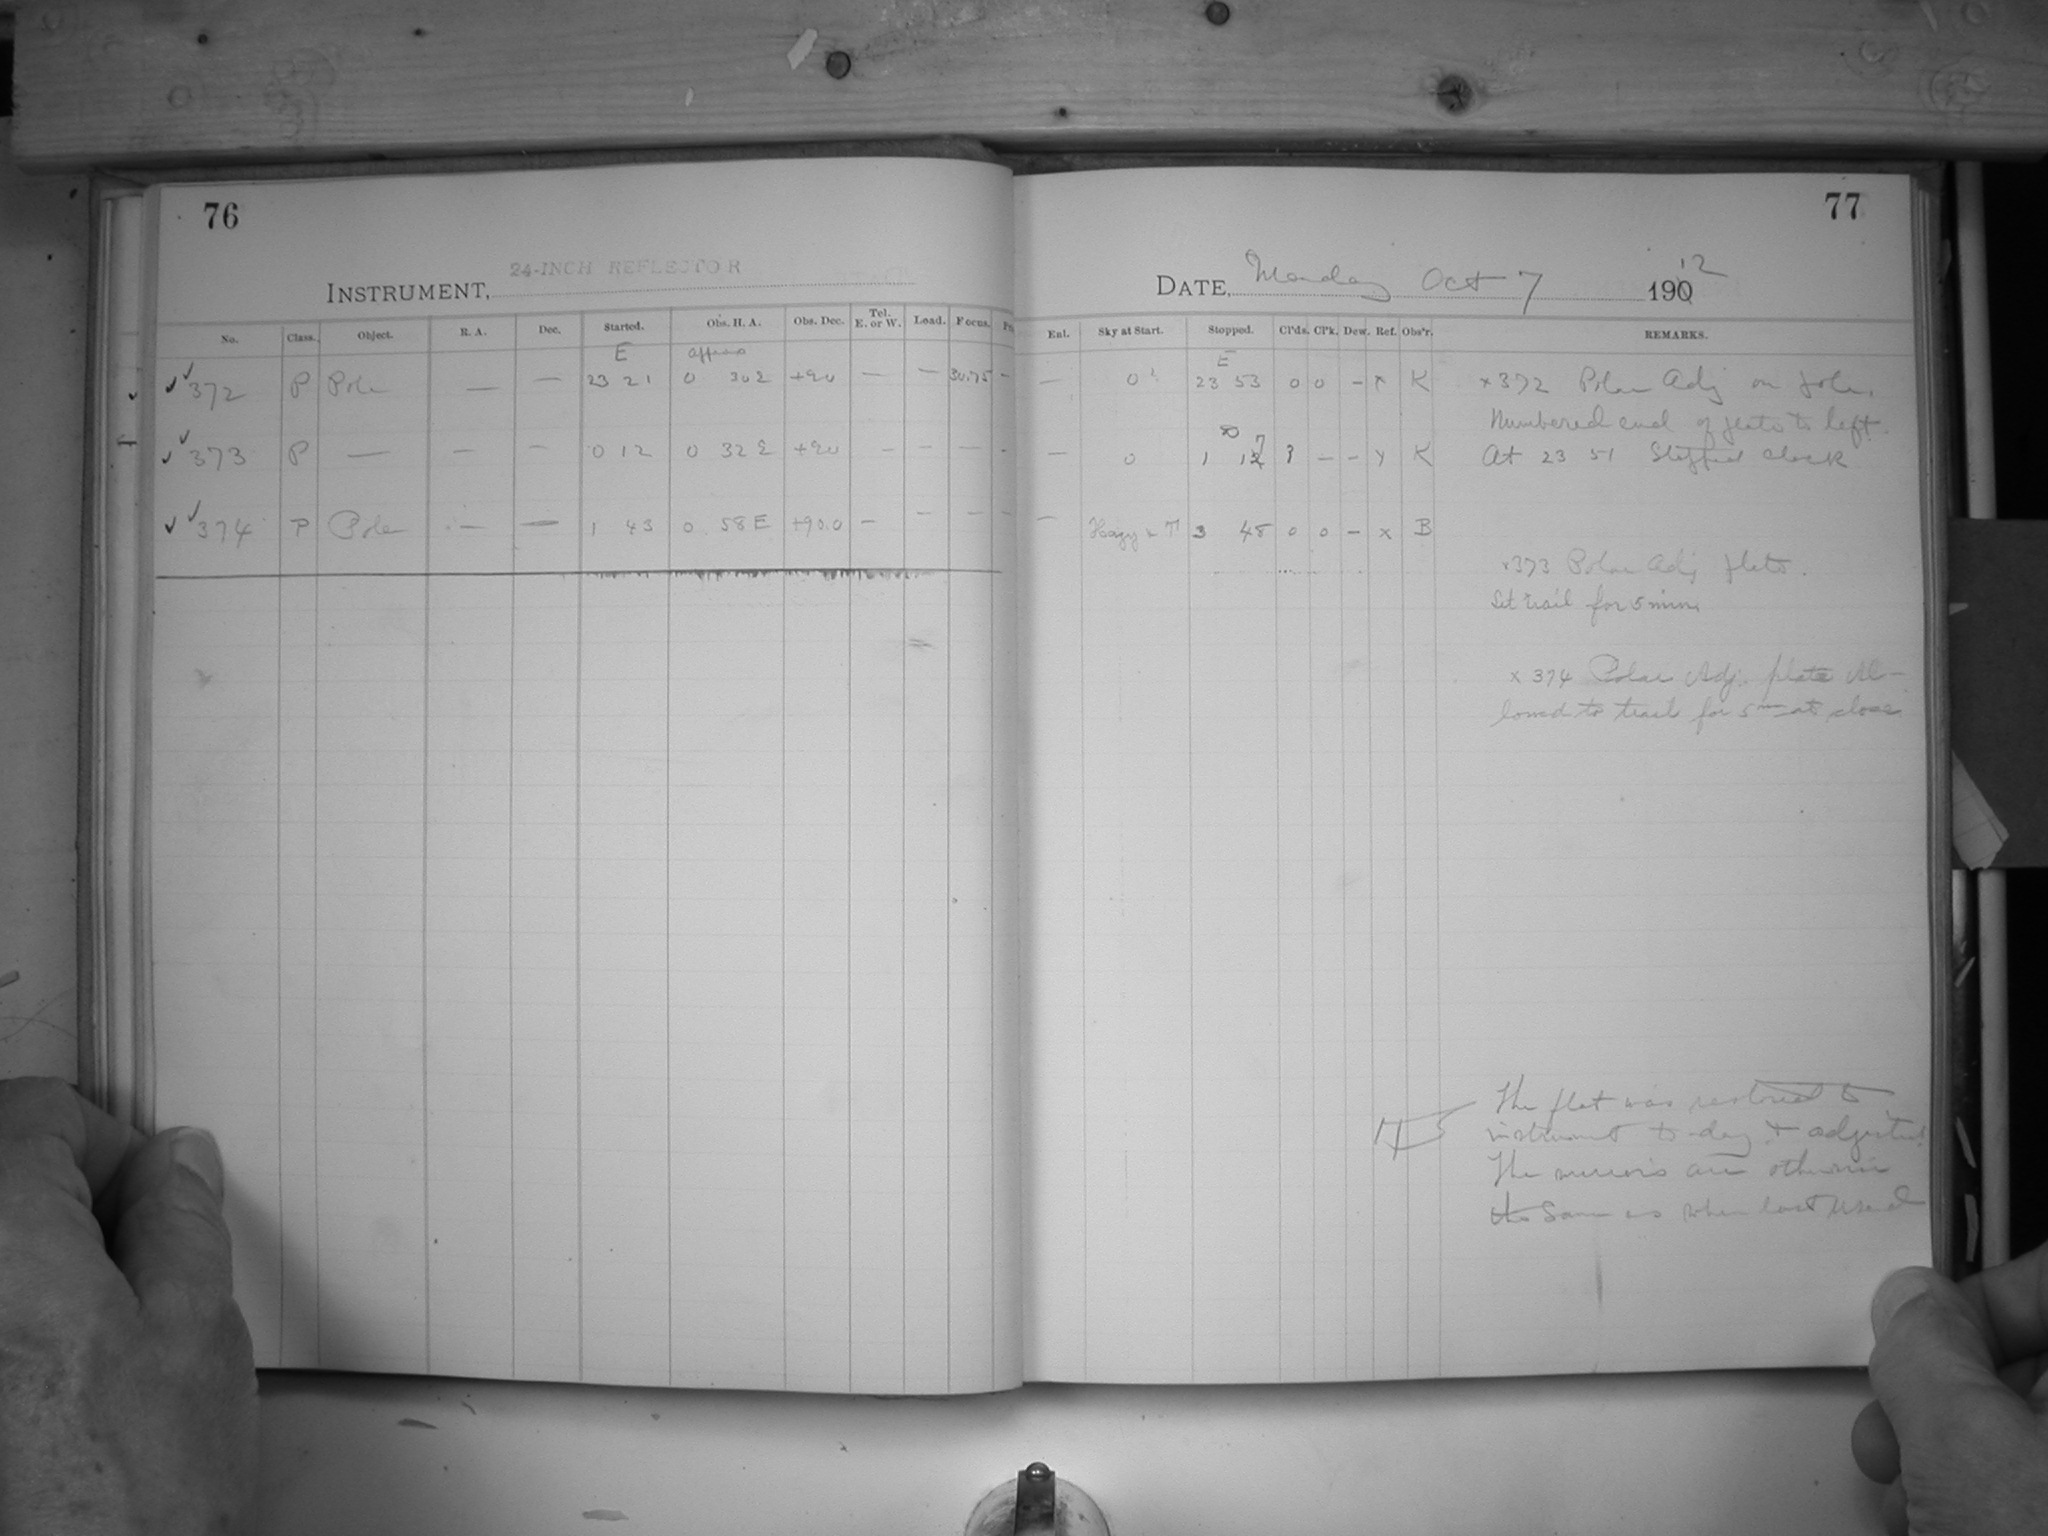 76
INSTRUMENT, 24-INCH REFLECTOR
No. Class. Object. R. A. Dec. Started. Obs. H. A. Obs. Dec. Tel. E. or W. Load. Focus.
E approx
✓✓372 P Pole — — 23 21 0 30 E +90 — — 30.75 -
✓✓373 P — — — 0 12 0 32 E +90 - — — -
✓✓374 P Pole — — 1 43 0 58 E +90.0 — — — -
77
DATE, Monday Oct 7 1912
Ent. Sky at Start. Stopped. Cl'ds. Cl'k. Dew. Ref. Obs'r. REMARKS.
E
— 0 23 53 0 0 - x K x372 Polar Adj on Pole.
Numbered end of plate to left.
— 0 1 17 ? — - x K At 23 51 Stopped clock
— Hazy 3 48 0 0 - x B
x373 Polar Adj plate.
Let trail for 5 min.
x 374 Polar Adj. plate Al-
lowed to trail for 5m at close
The flat was restored to
instrument to-day + adjusted
The mirrors are otherwise
the same as when last used